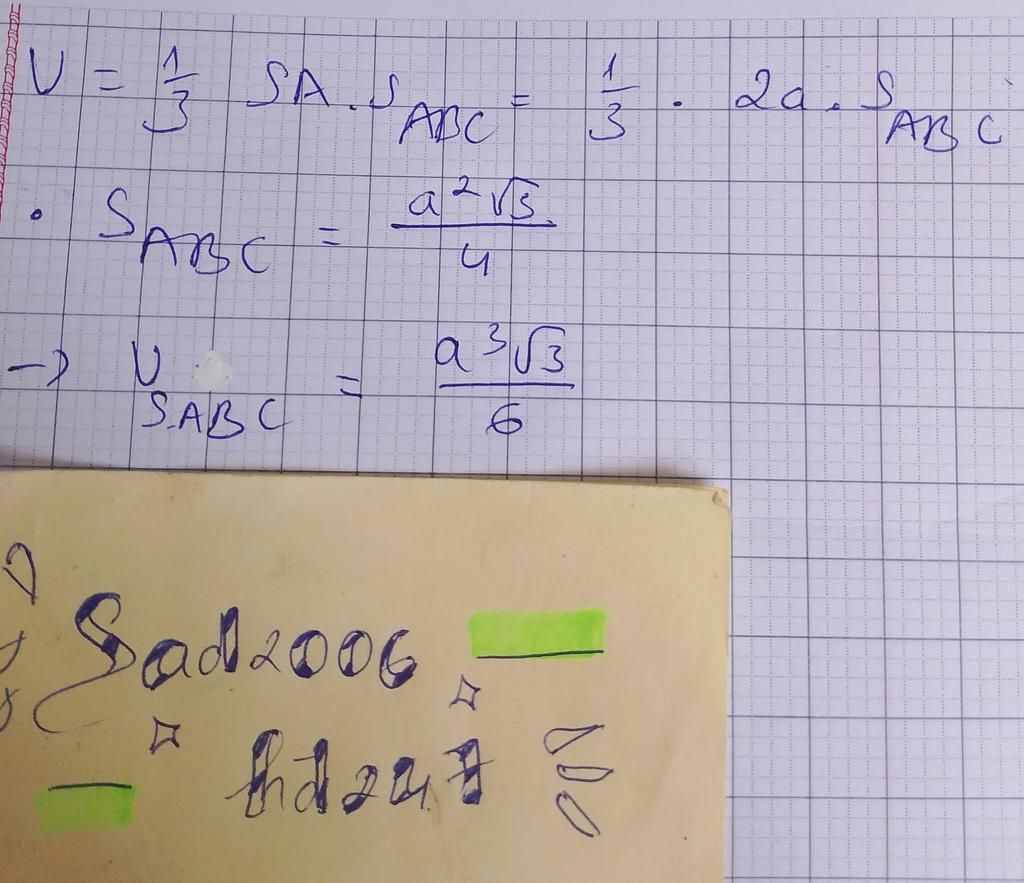 V = 1/3 SA . S_ABC = 1/3 . 2a . S_ABC
. S_ABC = a²√3 / 4
→ V_S.ABC = a³√3 / 6
Sad2006
hd247